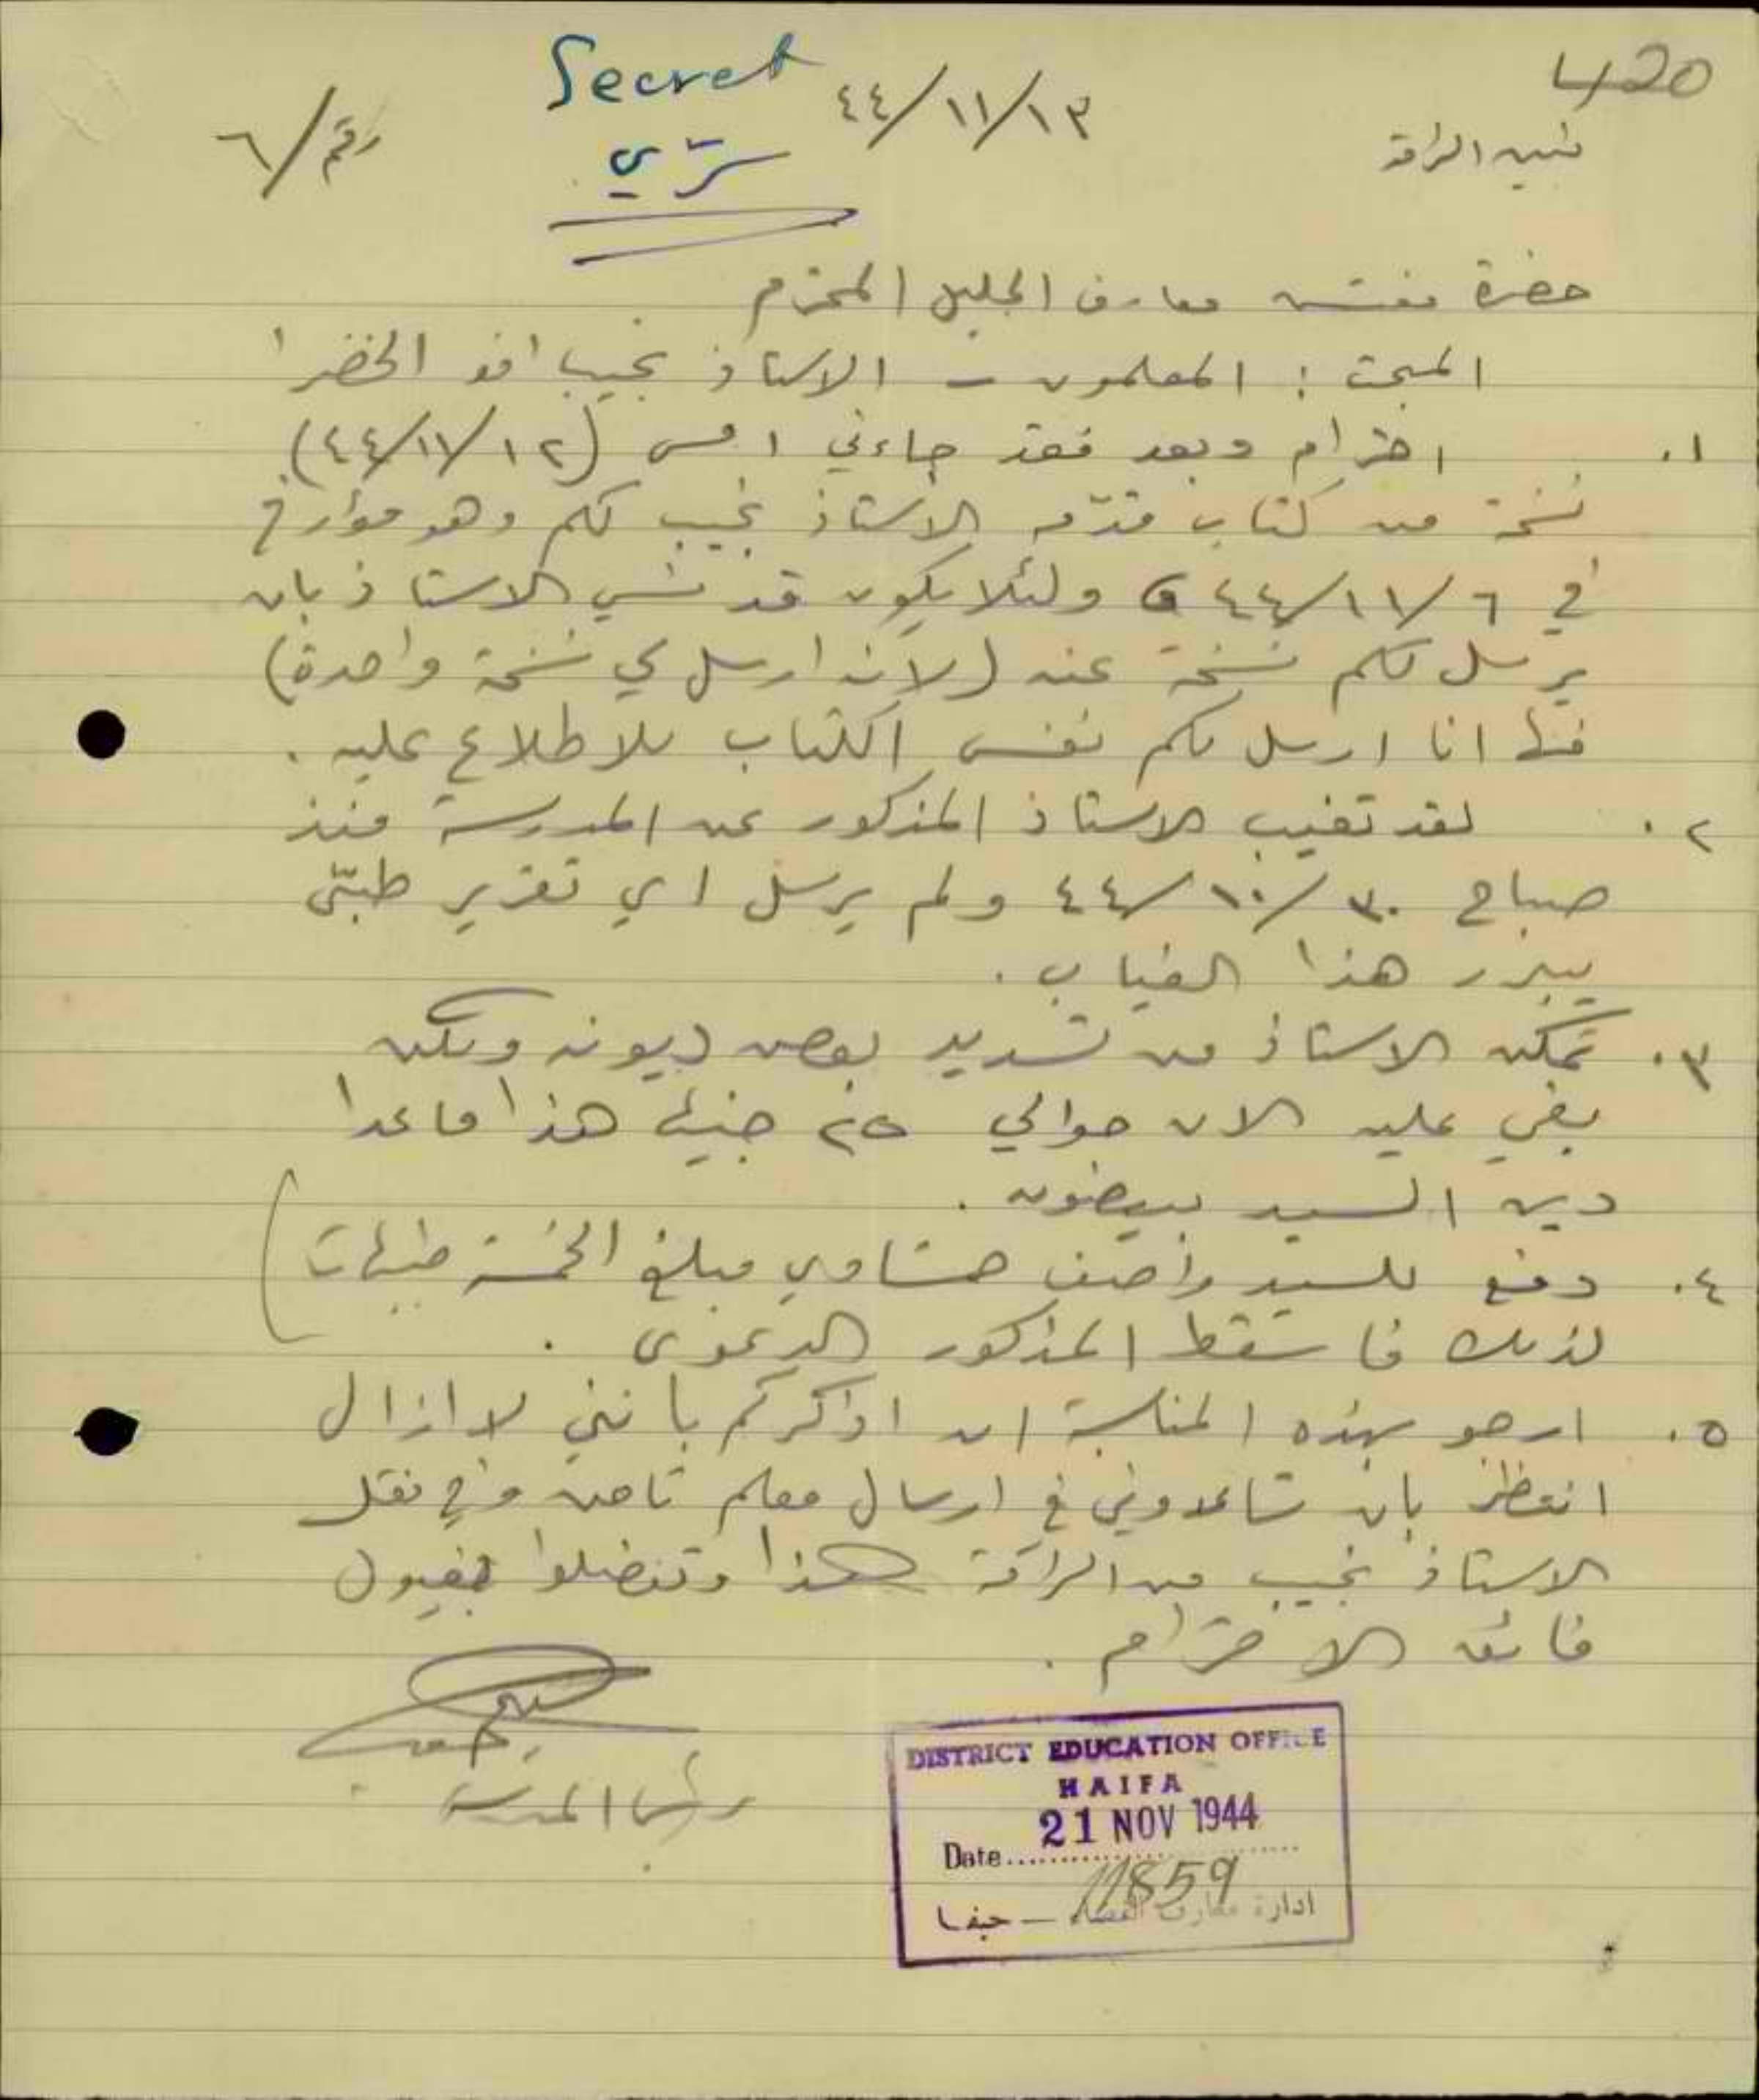 420
Secret
٤٤/١١/١٣
سرّي
رقم/٦
بنين الرامة
حضرة مفتش معارف الجليل المحترم
المبحث : المعلمون – الاستاذ نجيب افند الخضرا
١. احترام وبعد فقد جاءني امس (٤٤/١١/١٢)
نسخة من كتاب قدّمه الاستاذ نجيب لكم وهو مؤرخ
في ٤٤/١١/٦ ولئلا يكون قد نسي الاستاذ بان
يرسل لكم نسخة عنه (لانه ارسل لي نسخة واحدة)
فها انا ارسل لكم نفس الكتاب للاطلاع عليه .
٢. لقد تغيب الاستاذ المذكور عن المدرسة منذ
صباح ٤٤/١٠/٣٠ ولم يرسل اي تقرير طبّي
يبرر هذا الغياب .
٣. تمكن الاستاذ من تسديد بعض ديونه ولكن
بقي عليه الان حوالي ٢٥ جنيها هذا ما عدا
دين السيد بيضون .
٤. دفع للسيد واصف حشاوي مبلغ الخمسة جنيهات
لذلك فاسقط المذكور الدعوى .
٥. ارجو بهذه المناسبة ان اذكركم بانني لا ازال
انتظر بان تساعدوني في ارسال معلم ثامن وفي نقل
الاستاذ نجيب من الرامة هذا وتفضلوا بقبول
فائق الاحترام .
رئيس المدرسة
DISTRICT EDUCATION OFFICE
HAIFA
21 NOV 1944
Date
11859
ادارة معارف القضاء – حيفا